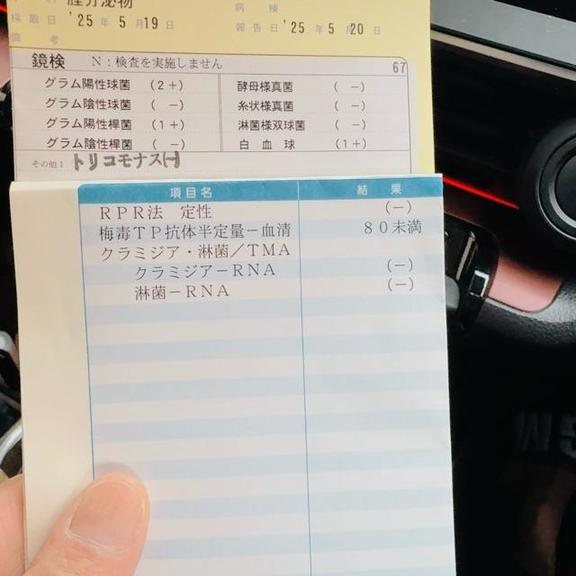 膣分泌物
病棟
採取日 '25年 5月19日
報告日 '25年 5月20日
備考
鏡検 N:検査を実施しません 67
グラム陽性球菌 (2+) 酵母様真菌 (-)
グラム陰性球菌 (-) 糸状様真菌 (-)
グラム陽性桿菌 (1+) 淋菌様双球菌 (-)
グラム陰性桿菌 (-) 白血球 (1+)
その他1 トリコモナス(-)
項目名 結果
RPR法 定性 (-)
梅毒TP抗体半定量-血清 80未満
クラミジア・淋菌/TMA
クラミジア-RNA (-)
淋菌-RNA (-)